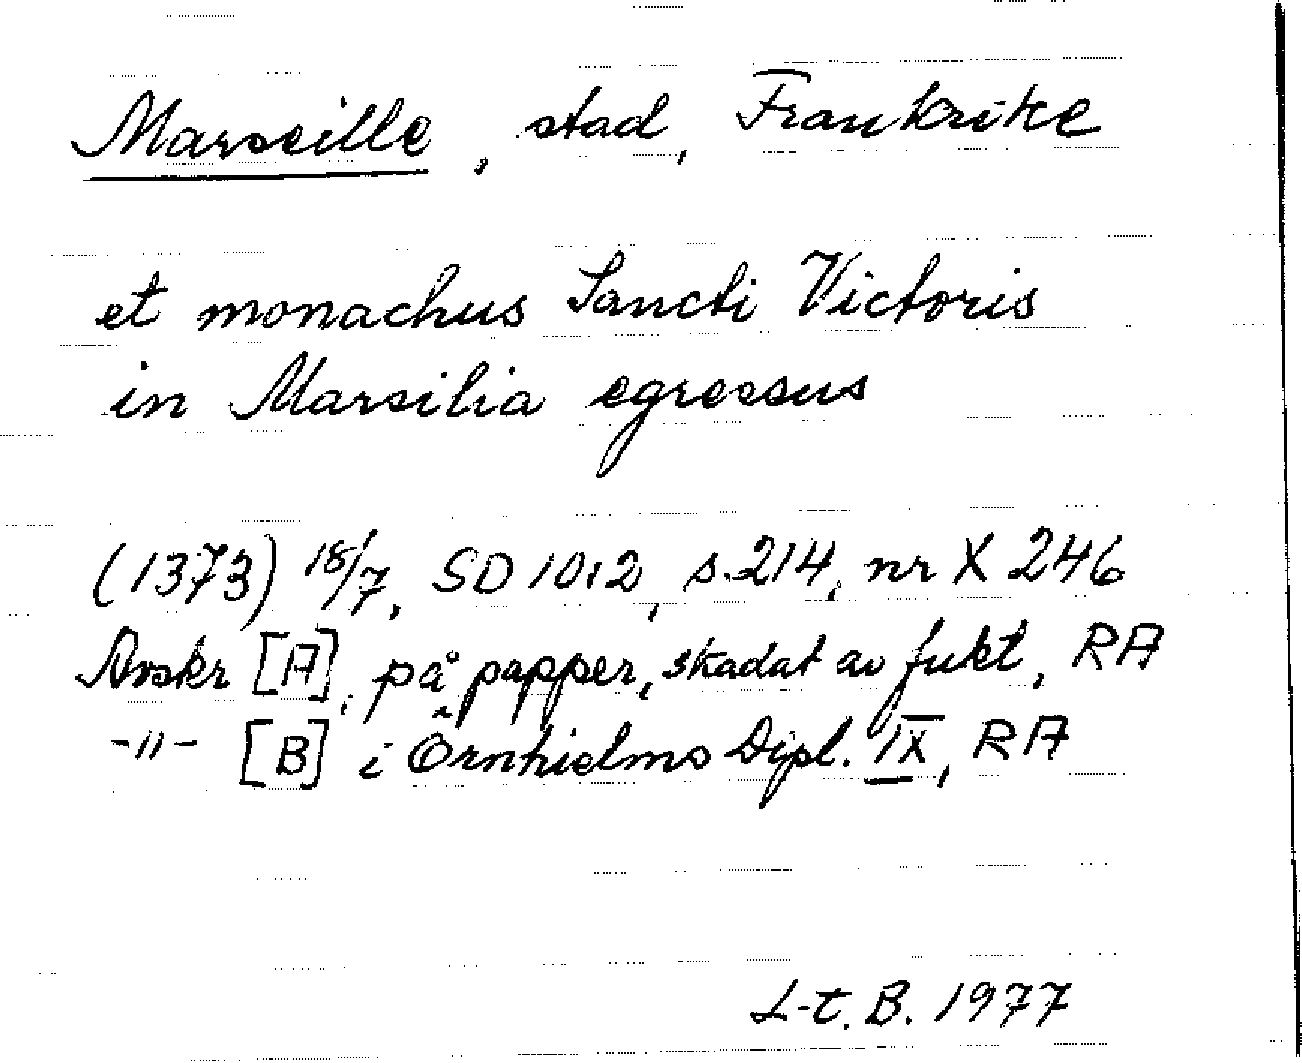 Marseille, stad, Frankrike
et monachus Sancti Victoris
in Marsilia egressus
(1373) 18/7, SD 10:2, s. 214, nr X 246
Avskr [A], på papper, skadat av fukt, RA
-"- [B] i Örnhielms Dipl. IX, RA
L-t. B. 1977